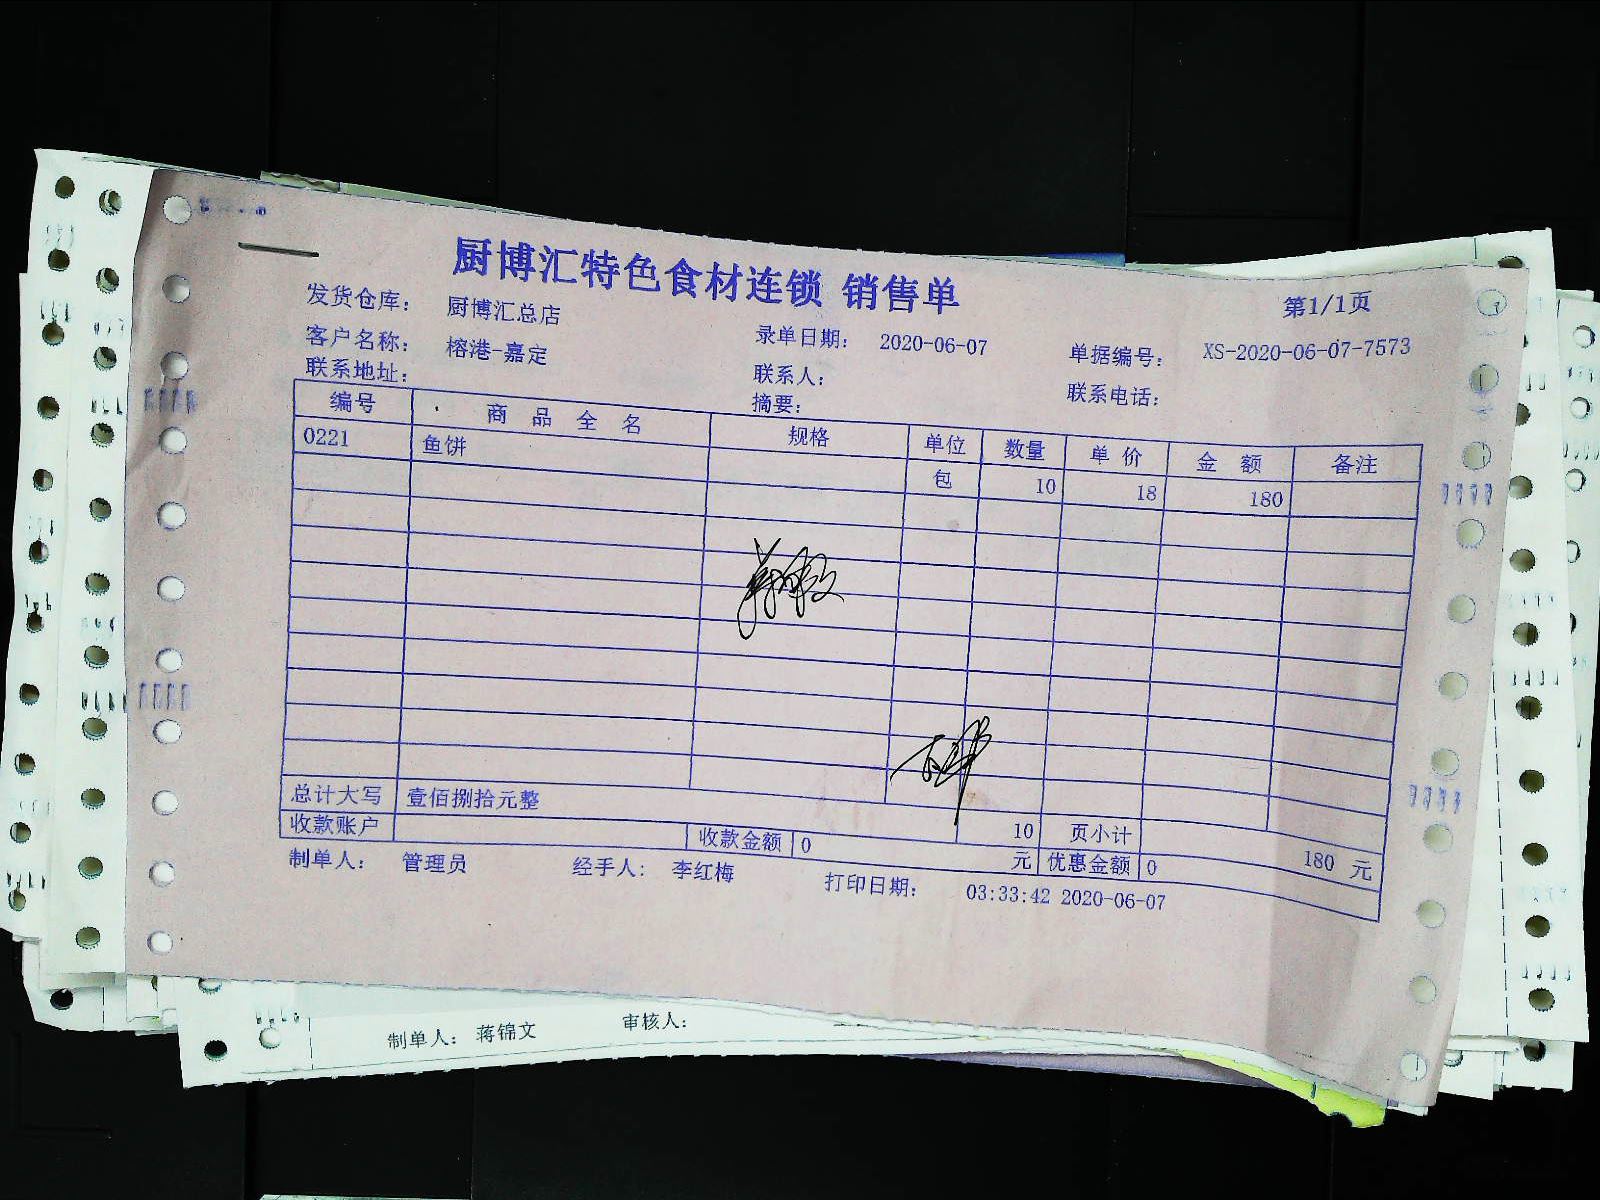 厨博汇特色食材连锁 销售单
第1/1页
发货仓库： 厨博汇总店
客户名称： 榕港-嘉定 录单日期： 2020-06-07 单据编号： XS-2020-06-07-7573
联系地址： 联系人： 联系电话：
摘要：
编号 商品全名 规格 单位 数量 单价 金额 备注
0221 鱼饼 包 10 18 180
总计大写 壹佰捌拾元整 10 页小计 180 元
收款账户 收款金额 0 元 优惠金额 0
制单人： 管理员 经手人： 李红梅 打印日期： 03:33:42 2020-06-07
制单人： 蒋锦文 审核人：